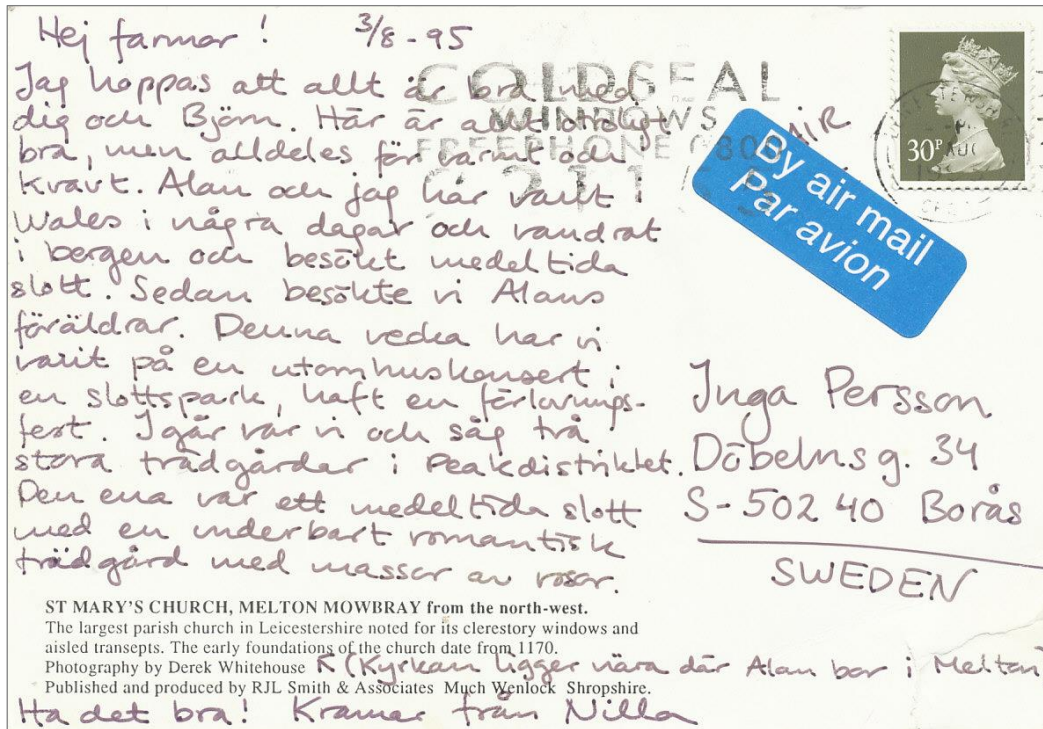 Hej farmor! 3/8-95
Jag hoppas att allt är bra med
dig och Björn. Här är allt otroligt
bra, men alldeles för varmt och
kvavt. Alan och jag har varit
Wales i några dagar och vandrat
i bergen och besökt medeltida
slott. Sedan besökte vi Alans
föräldrar. Denna vecka har vi
varit på en utomhuskonsert i
en slottspark, haft en förlovnings-
fest. Igår var vi och såg två
stora trädgårdar i Peakdistriktet.
Den ena var ett medeltida slott
med en underbart romantisk
trädgård med massor av rosor.
COLDSEAL
WINDOWS
FREEPHONE 0800
AIR
30P
AUG
By air mail
Par avion
Inga Persson
Döbelnsg. 34
S-502 40 Borås
SWEDEN
ST MARY'S CHURCH, MELTON MOWBRAY from the north-west.
The largest parish church in Leicestershire noted for its clerestory windows and
aisled transepts. The early foundations of the church date from 1170.
Photography by Derek Whitehouse
(Kyrkan ligger nära där Alan bor i Melton)
Published and produced by RJL Smith & Associates Much Wenlock Shropshire.
Ha det bra! Kramar från Nilla